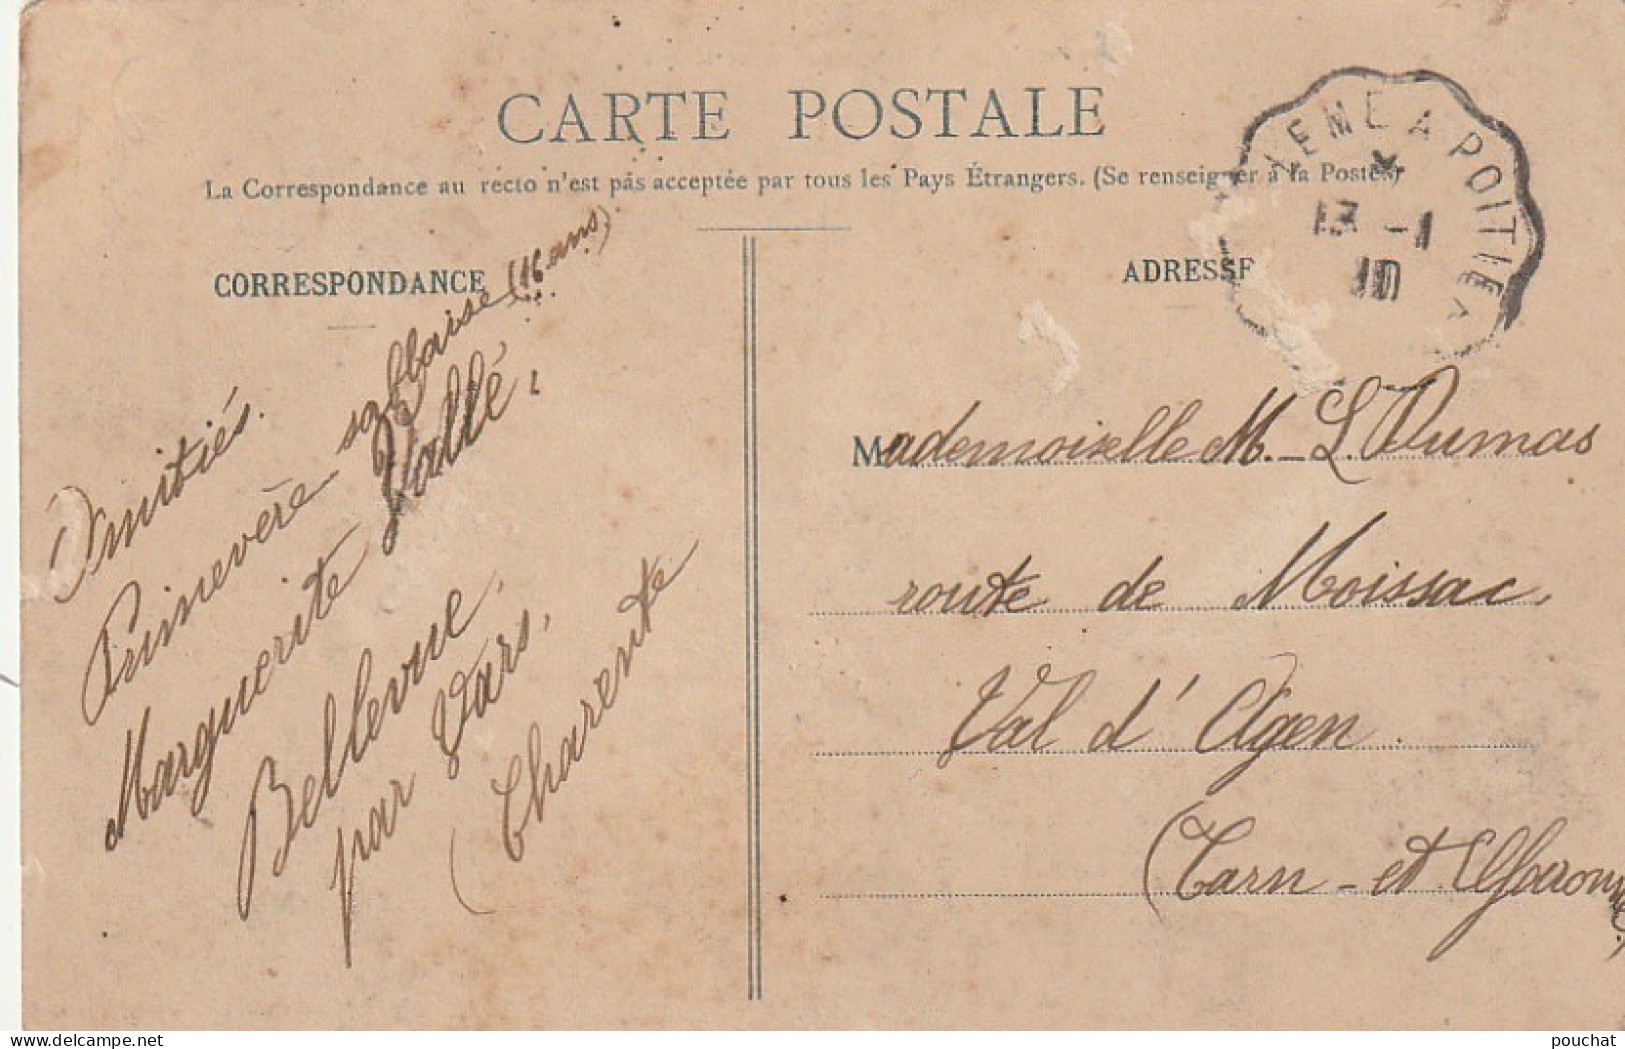 CARTE POSTALE
La Correspondance au recto n'est pas acceptée par tous les Pays Étrangers. (Se renseigner à la Poste.)
CORRESPONDANCE
Amitiés.
Primevère sablaise (16 ans)
Marguerite Vallé.
Bellevue,
par Vars,
(Charente
ADRESSE
Mademoiselle M.-L. Dumas
route de Moissac,
Val d'Agen.
(Tarn-et-Garonne)
A POITIE
13 -1
10
pouchat